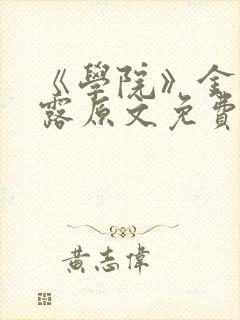 《學院》金
露原文免費
黃志偉